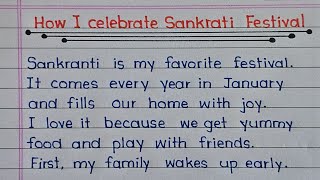 How I celebrate Sankrati Festival
Sankranti is my favorite festival.
It comes every year in January
and fills our home with joy.
I love it because we get yummy
food and play with friends.
First, my family wakes up early.